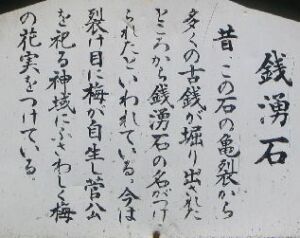 銭湧石
昔、この石の亀裂から
多くの古銭が堀り出された
ところから銭湧石の名がつけ
られたといわれている。今は
裂け目に梅が自生し菅公
を祀る神域にふさわしく梅
の花実をつけている。